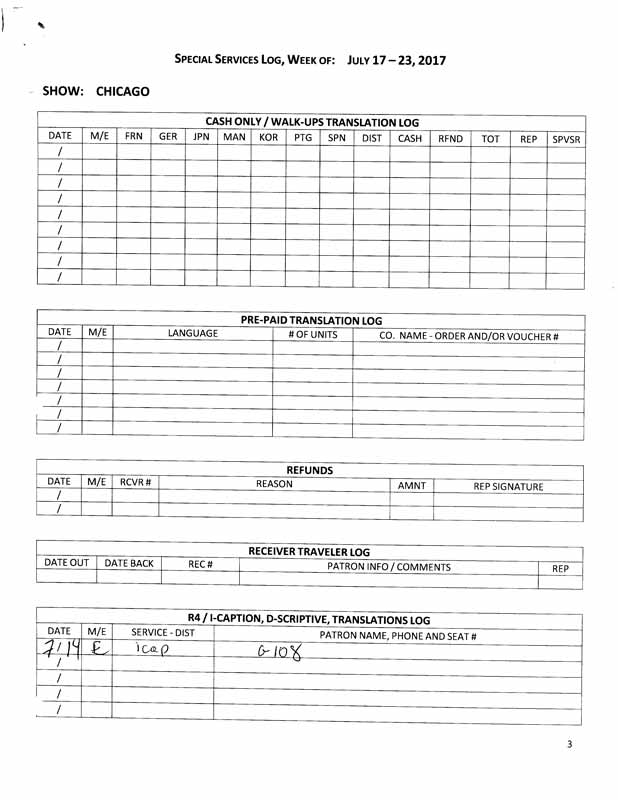 SPECIAL SERVICES LOG, WEEK OF: JULY 17 – 23, 2017
SHOW: CHICAGO
CASH ONLY / WALK-UPS TRANSLATION LOG
DATE M/E FRN GER JPN MAN KOR PTG SPN DIST CASH RFND TOT REP SPVSR
/
/
/
/
/
/
/
/
/
PRE-PAID TRANSLATION LOG
DATE M/E LANGUAGE # OF UNITS CO. NAME - ORDER AND/OR VOUCHER #
/
/
/
/
/
/
/
REFUNDS
DATE M/E RCVR # REASON AMNT REP SIGNATURE
/
/
RECEIVER TRAVELER LOG
DATE OUT DATE BACK REC # PATRON INFO / COMMENTS REP
R4 / I-CAPTION, D-SCRIPTIVE, TRANSLATIONS LOG
DATE M/E SERVICE - DIST PATRON NAME, PHONE AND SEAT #
7/19 E icap G-108
/
/
/
/
3